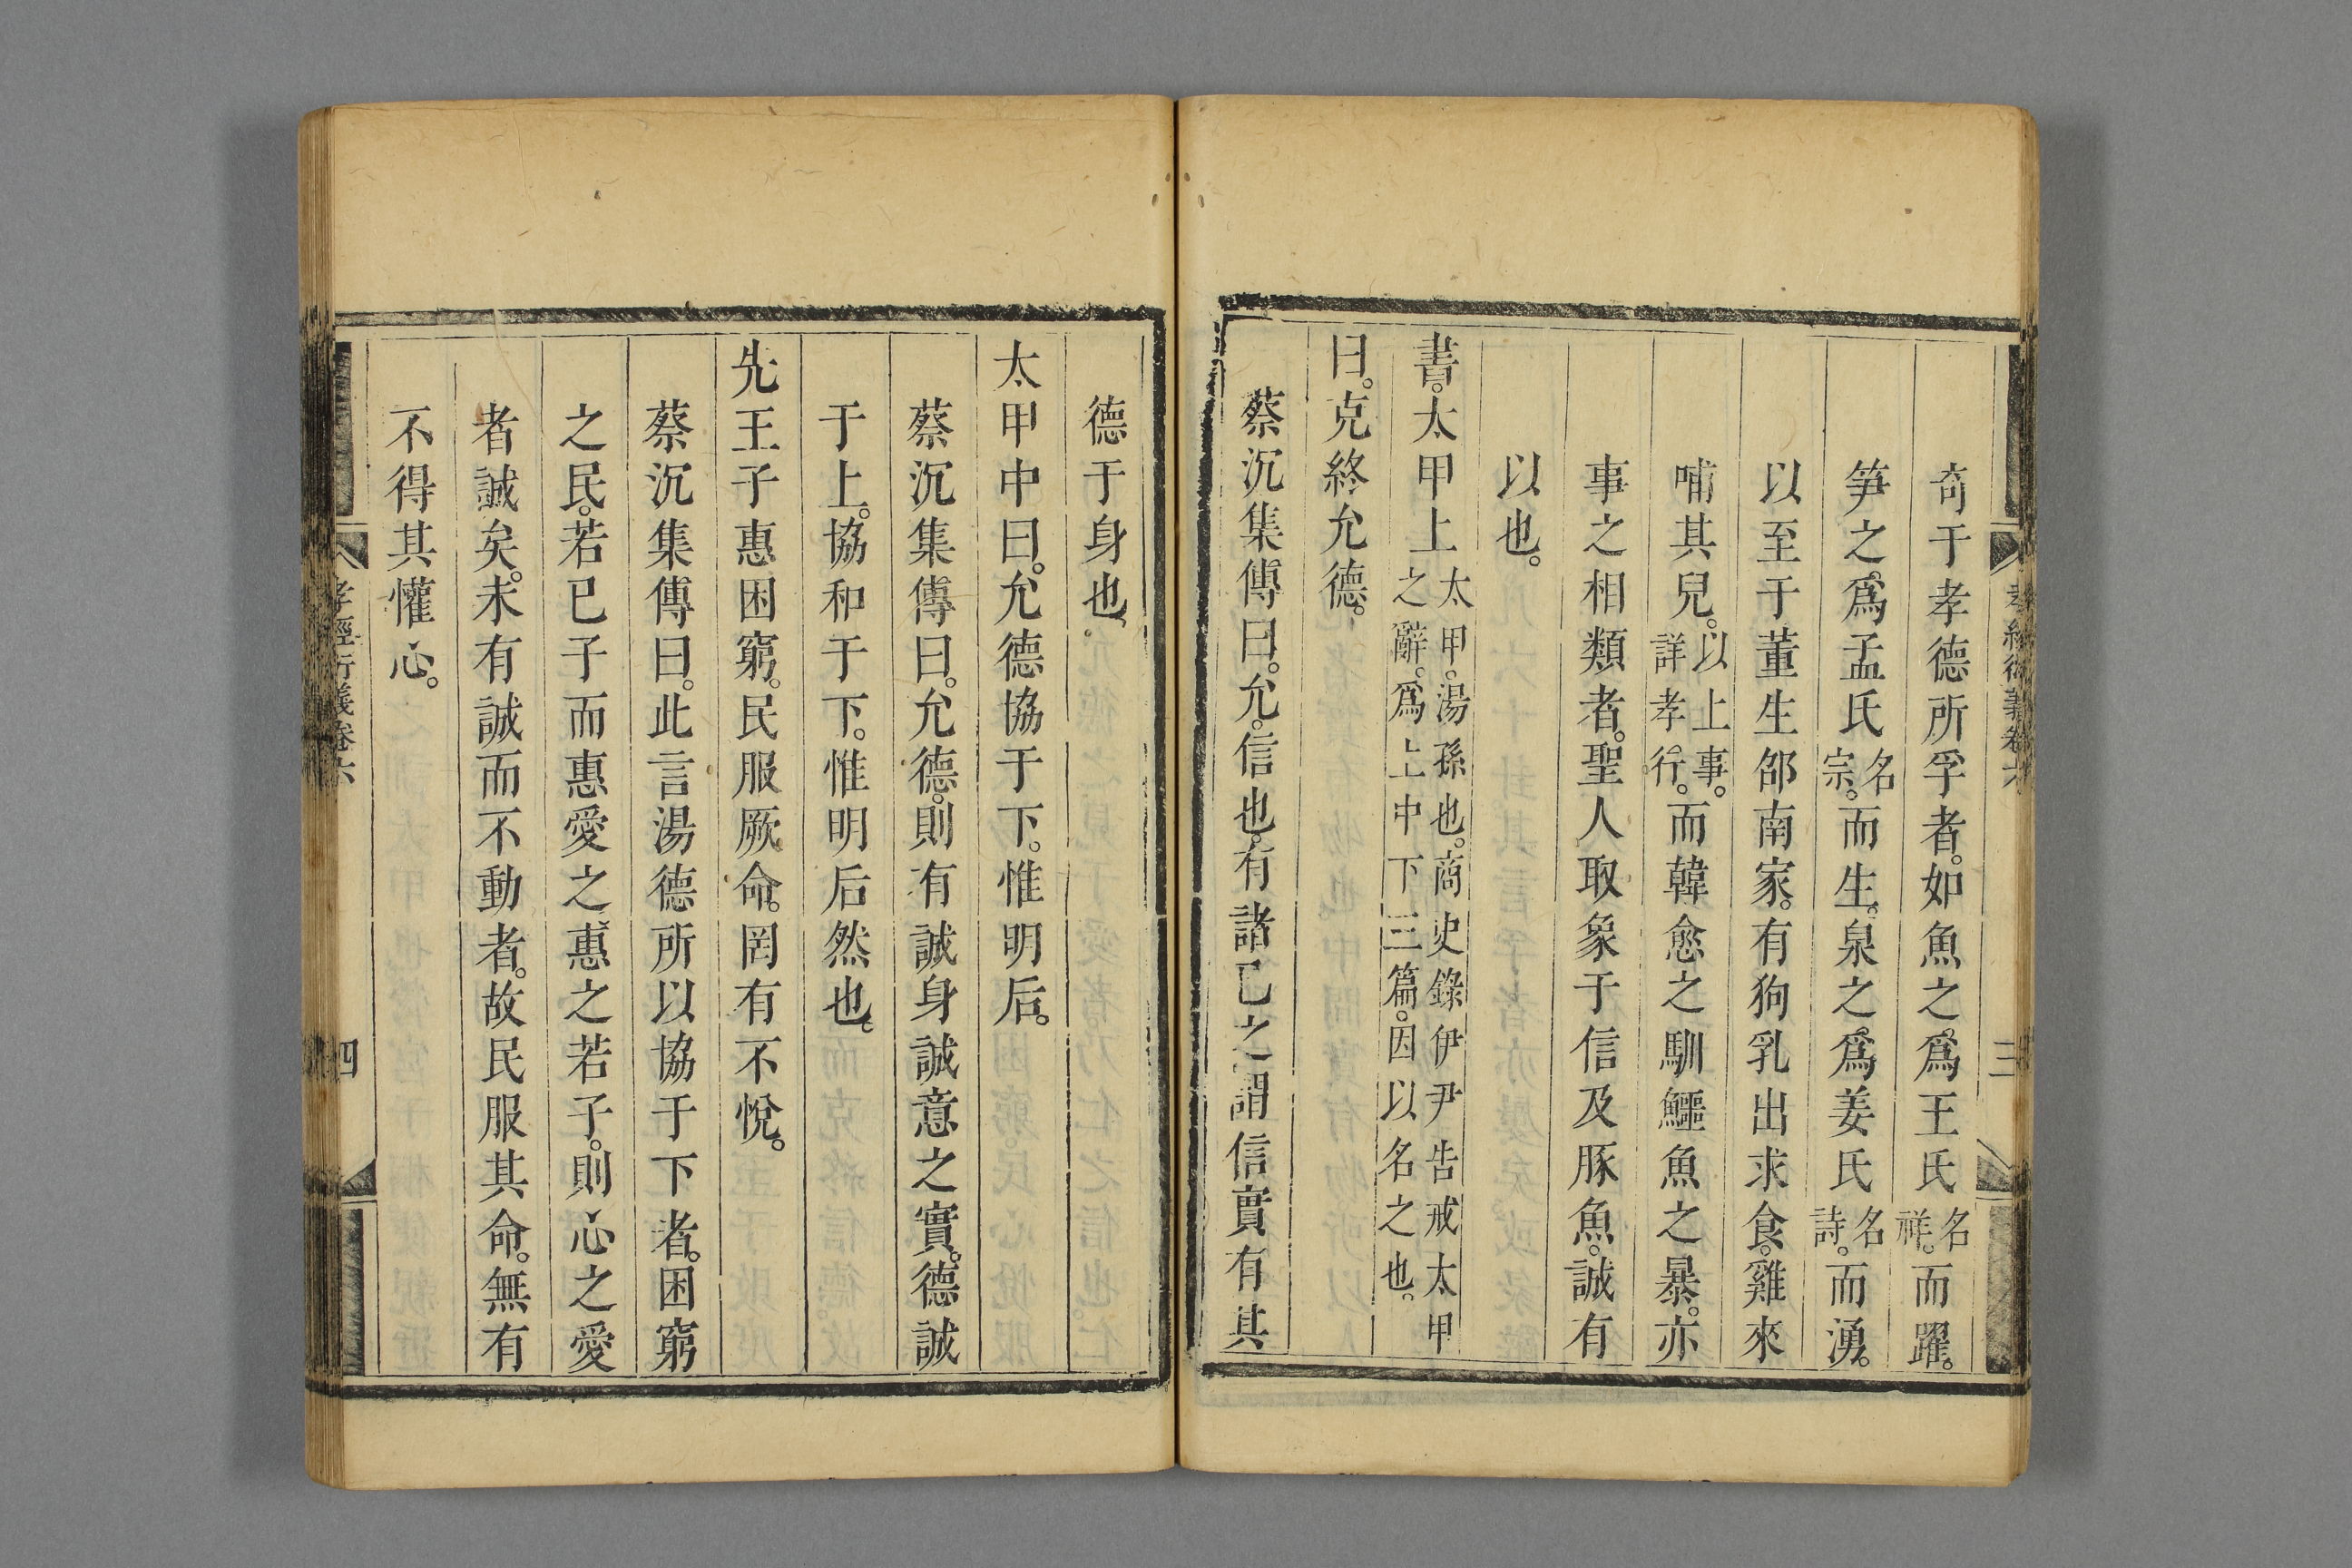 孝經衍義卷六
三
奇于孝德所孚者。如魚之爲王氏名祥。而躍。
笋之爲孟氏名宗。而生。泉之爲姜氏名詩。而湧。
以至于董生邵南家。有狗乳出求食。雞來
哺其兒。以上事。詳孝行。而韓愈之馴鱷魚之暴。亦
事之相類者。聖人取象于信及豚魚。誠有
以也。
書。太甲上太甲。湯孫也。商史錄伊尹告戒太甲之辭。爲上中下三篇。因以名之也。
曰。克終允德。
蔡沉集傳曰。允。信也。有諸己之謂信實有其
德于身也。
太甲中曰。允德協于下。惟明后。
蔡沉集傳曰。允德。則有誠身誠意之實。德誠
于上。協和于下。惟明后然也。
先王子惠困窮。民服厥命。罔有不悅。
蔡沉集傳曰。此言湯德所以協于下者。困窮
之民。若己子而惠愛之。惠之若子。則心之愛
者誠矣。未有誠而不動者。故民服其命。無有
不得其懽心。
孝經衍義卷六
四